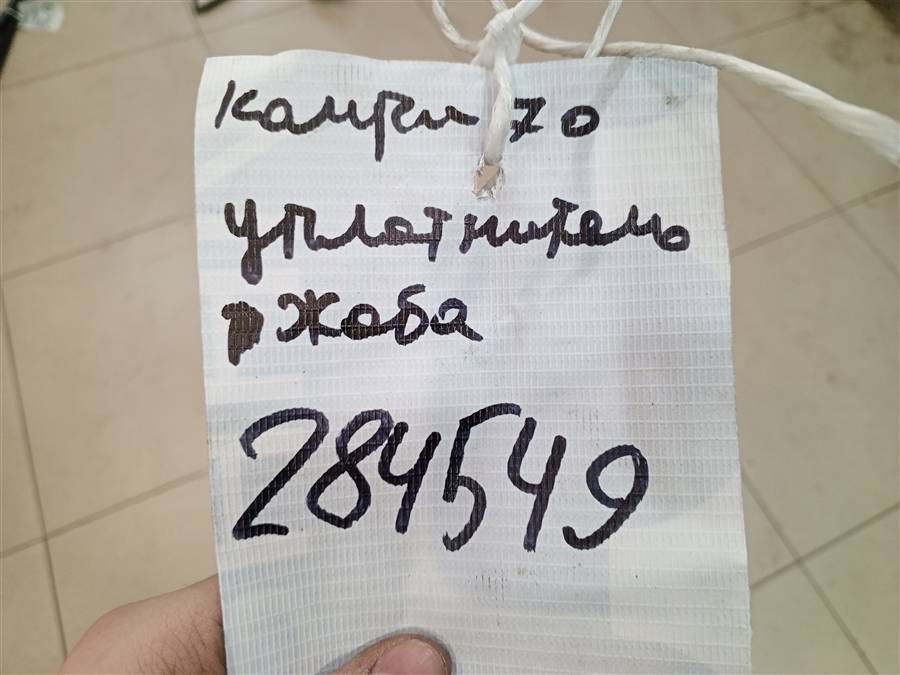 камри 70
уплотнитель
жаба
284549